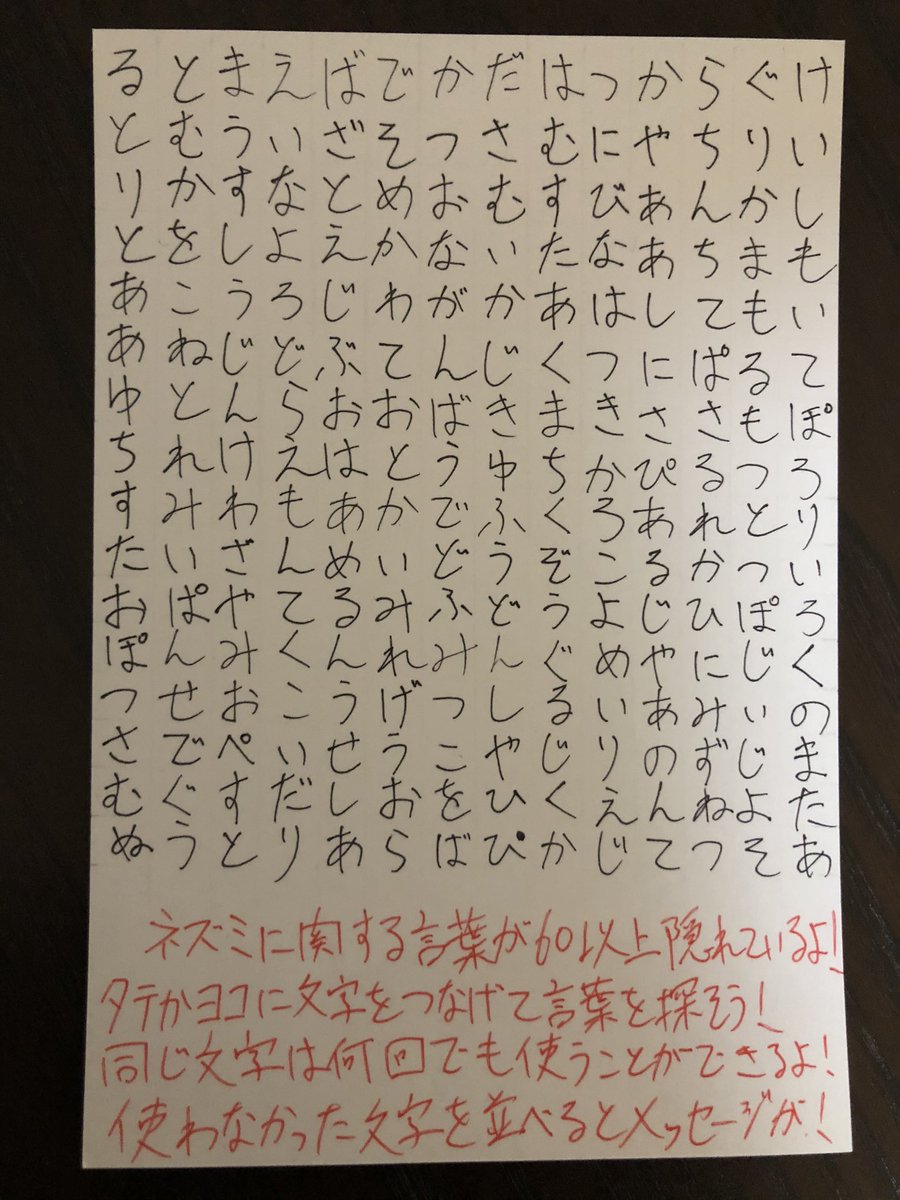 けいしもいてぽろりいろくのまたあ
ぐりかまもるもつとつぽじいじよそ
らちんちてぱさるれかひにみずねつ
かやああしにさぴあるじやあのんて
つにびなはつきかろこよめいりえじ
はむすたあくまちくぞうぐるじくか
ださむいかじきゆふうどんしやひぴ
かつおながんばうでどふみつこをば
でそめかわておとかいみれげうおら
ばざとえじぶおはあめるんうせしあ
えいなよろどらえもんてくこいだり
まうすしうじんけわざやみおぺすと
とむかをこねとれみいぱんせでぐう
るとりとああゆちすたおぽつさむぬ
ネズミに関する言葉が60以上隠れているよ!
タテかヨコに文字をつなげて言葉を探そう!
同じ文字は何回でも使うことができるよ!
使わなかった文字を並べるとメッセージが!